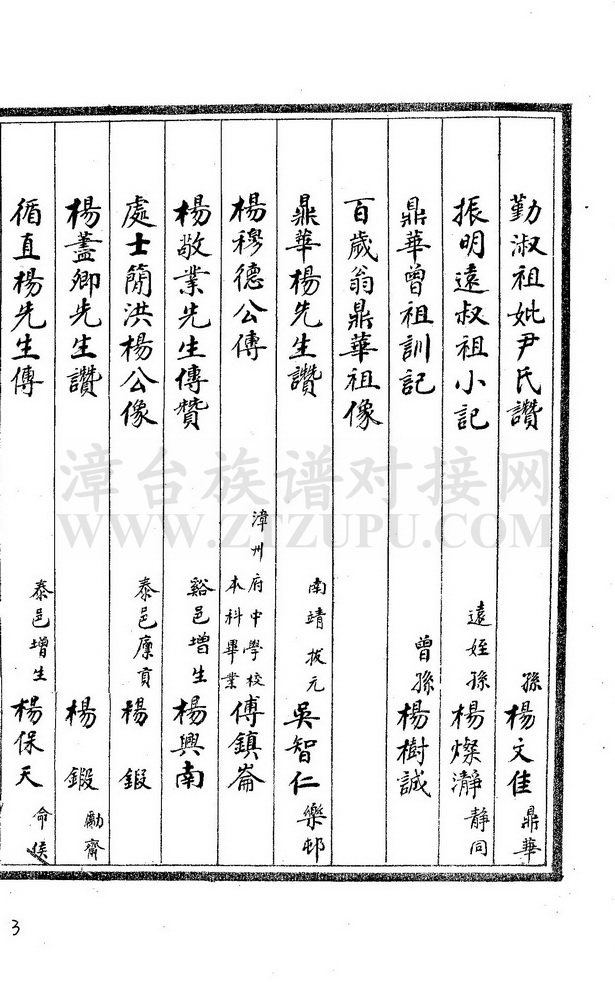 勤淑祖妣尹氏讚 孫 楊文佳 鼎華
振明遠叔祖小記 遠姪孫 楊燦瀞 静同
鼎華曾祖訓記 曾孫 楊樹誠
百歲翁鼎華祖像
鼎華楊先生讚 南靖拔元 吳智仁 樂邨
楊穆德公傳 漳州府中學校本科畢業 傅鎮崙
楊敬業先生傳贊 谿邑增生 楊興南
處士簡洪楊公像 泰邑廩貢 楊鍛
楊藎卿先生讚 楊鍛 勵齋
循直楊先生傳 泰邑增生 楊保天 命
漳台族谱对接网
WWW.ZTZUPU.COM
3